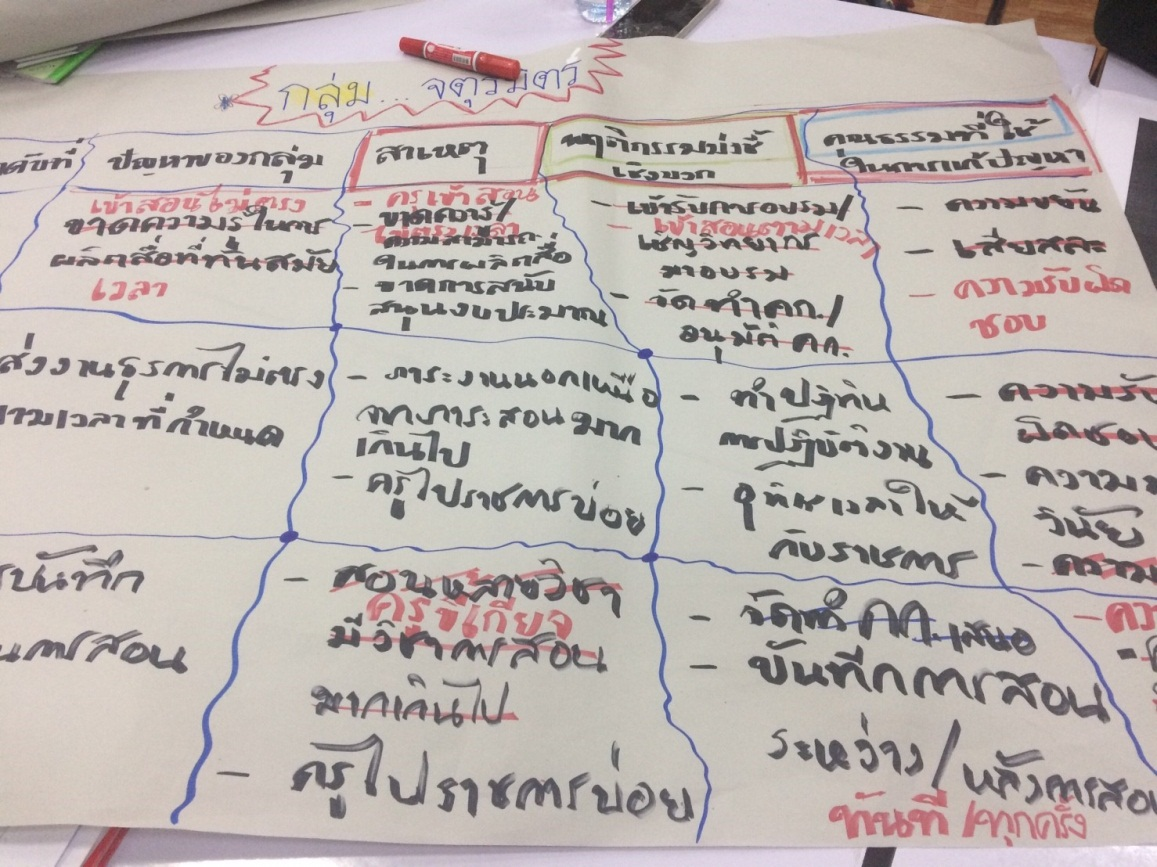 กลุ่ม... จตุรมิตร
ปัญหาของกลุ่ม
สาเหตุ
พฤติกรรมบ่งชี้
เชิงบวก
คุณธรรมที่ใช้
ในการแก้ปัญหา
เข้าสอนไม่ตรง
ขาดความรู้ในการ
ผลิตสื่อที่ทันสมัย
เวลา
- ครูเข้าสอน
ขาดความรู้/
ไม่ตรงเวลา
ความสามารถ
ในการผลิตสื่อ
- ขาดการสนับ
สนุนงบประมาณ
- เข้ารับการอบรม/
- เข้าสอนตามเวลา
เชิญวิทยากร
มาอบรม
- จัดทำคก./
อนุมัติ คก.
- ความขยัน
- เสียสละ
- ความรับผิด
ชอบ
ส่งงานธุรการไม่ตรง
ตามเวลาที่กำหนด
- ภาระงานนอกเหนือ
จากภาระสอนมาก
เกินไป
- ครูไปราชการบ่อย
- ทำปฏิทิน
การปฏิบัติงาน
- อุทิศเวลาให้
กับราชการ
- ความรับ
ผิดชอบ
- ความ
วินัย
- ความ
บันทึก
การสอน
- สอนหลายวิชา
ครูขี้เกียจ
มีวิชาการสอน
มากเกินไป
- ครูไปราชการบ่อย
- จัดทำ คก. เสนอ
- บันทึกการสอน
ระหว่าง/หลังการสอน
ทันที /ทุกครั้ง